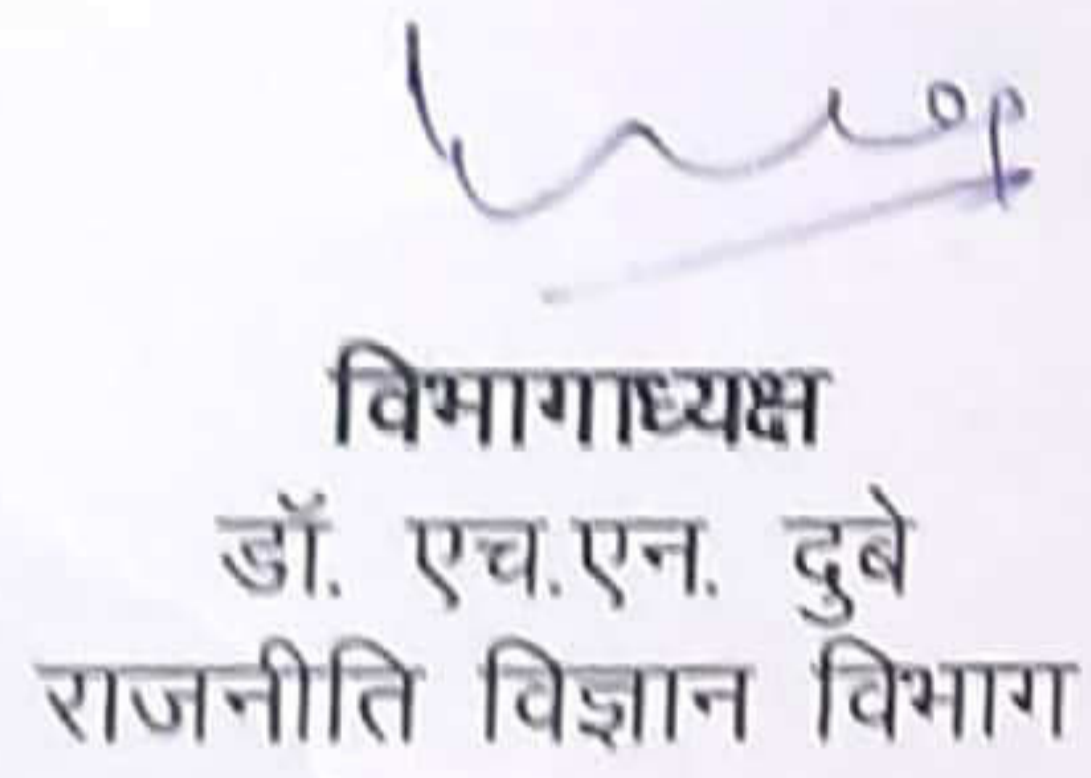 विभागाध्यक्ष
डॉ. एच.एन. दुबे
राजनीति विज्ञान विभाग